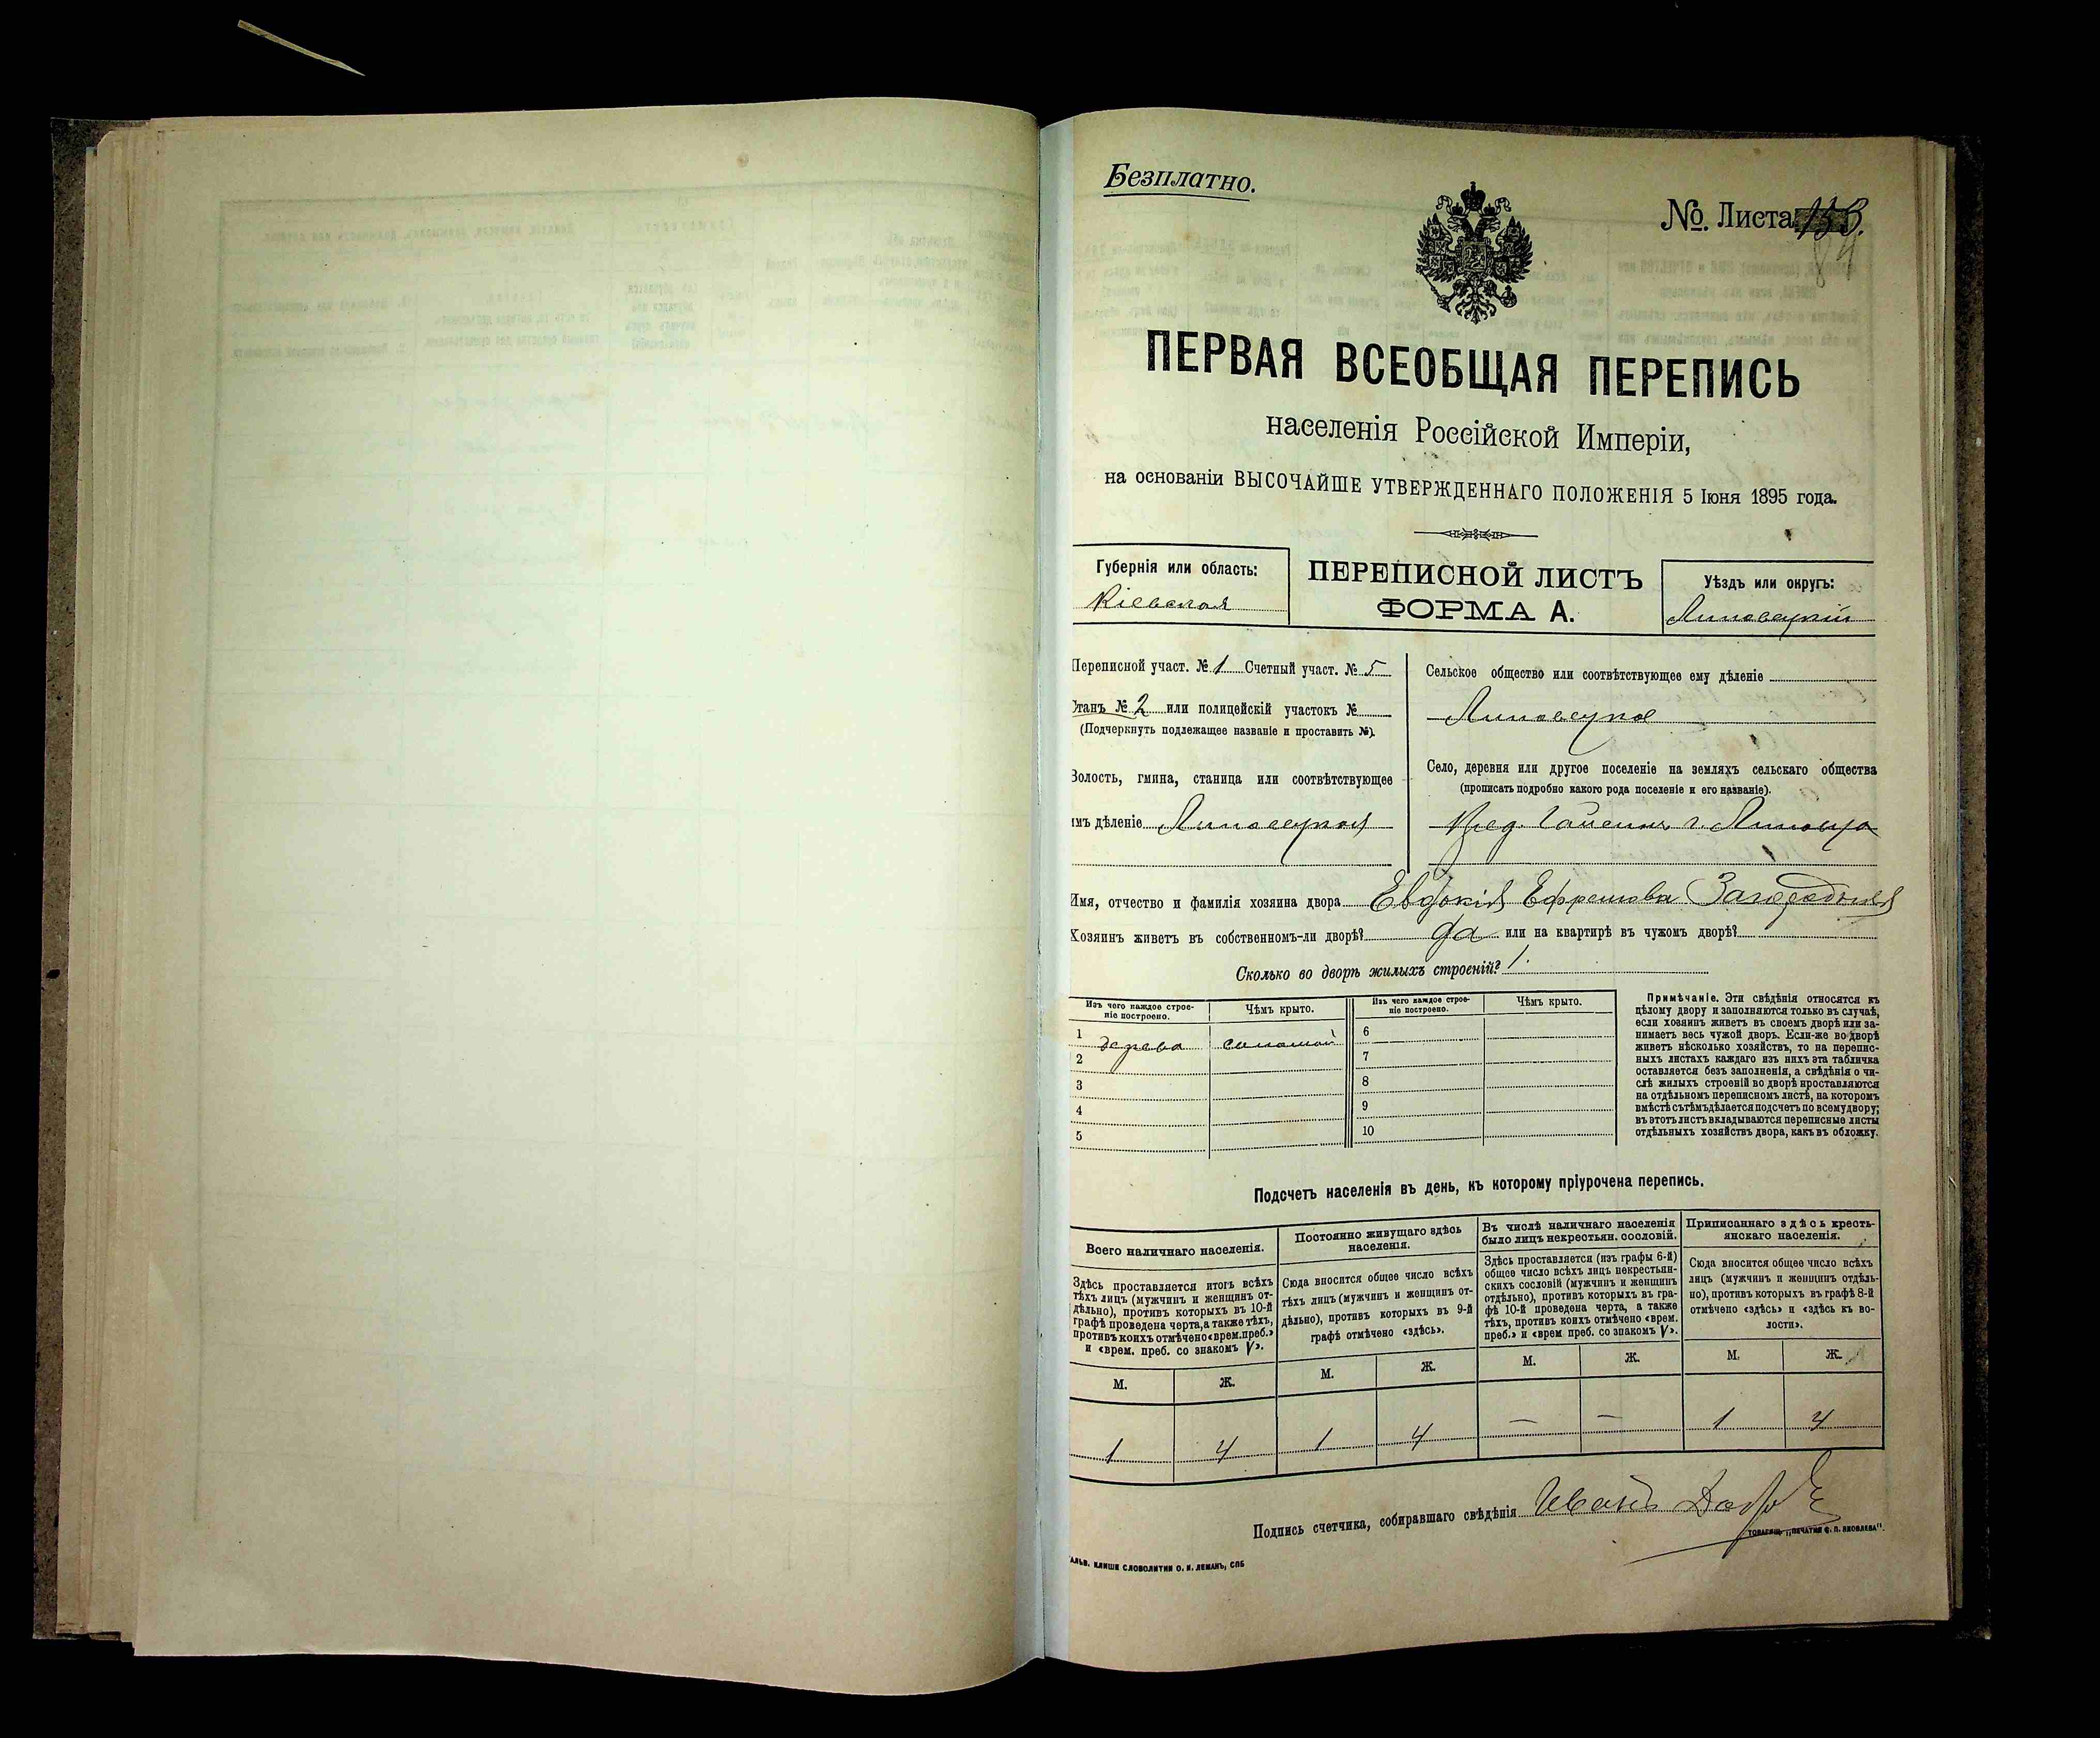 Безплатно.
№. Листа 153.
84
ПЕРВАЯ ВСЕОБЩАЯ ПЕРЕПИСЬ
населенія Россійской Имперіи,
на основаніи ВЫСОЧАЙШЕ УТВЕРЖДЕННАГО ПОЛОЖЕНІЯ 5 Іюня 1895 года.
Губернія или область:
Кіевская
ПЕРЕПИСНОЙ ЛИСТЪ
ФОРМА А.
Уѣздъ или округъ:
Липовецкій
Переписной участ. № 1 Счетный участ. № 5
Станъ № 2 или полицейскій участокъ №
(Подчеркнуть подлежащее названіе и проставить №).
Волость, гмина, станица или соотвѣтствующее
имъ дѣленіе Липовецкая
Сельское общество или соотвѣтствующее ему дѣленіе
Липовецкое
Село, деревня или другое поселеніе на земляхъ сельскаго общества
(прописать подробно какого рода поселеніе и его названіе).
Пред. г. Липовца
Имя, отчество и фамилія хозяина двора Евдокія Ефремова
Хозяинъ живетъ въ собственномъ-ли дворѣ? да или на квартирѣ въ чужомъ дворѣ?
Сколько во дворѣ жилыхъ строеній? 1.
Изъ чего каждое строе-
ніе построено.
Чѣмъ крыто.
Изъ чего каждое строе-
ніе построено.
Чѣмъ крыто.
1 дерева соломой 6
2 7
3 8
4 9
5 10
Примѣчаніе. Эти свѣдѣнія относятся къ
цѣлому двору и заполняются только въ случаѣ,
если хозяинъ живетъ въ своемъ дворѣ или за-
нимаетъ весь чужой дворъ. Если-же во дворѣ
живетъ нѣсколько хозяйствъ, то на перепис-
ныхъ листахъ каждаго изъ нихъ эта табличка
оставляется безъ заполненія, а свѣдѣнія о чи-
слѣ жилыхъ строеній во дворѣ проставляются
на отдѣльномъ переписномъ листѣ, на которомъ
вмѣстѣ съ тѣмъ дѣлается подсчетъ по всему двору;
въ этотъ листъ вкладываются переписные листы
отдѣльныхъ хозяйствъ двора, какъ въ обложку.
Подсчетъ населенія въ день, къ которому пріурочена перепись.
Всего наличнаго населенія.
Здѣсь проставляется итогъ всѣхъ
тѣхъ лицъ (мужчинъ и женщинъ от-
дѣльно), противъ которыхъ въ 10-й
графѣ проведена черта, а также тѣхъ,
противъ коихъ отмѣчено «врем. преб.»
и «врем. преб. со знакомъ V».
Постоянно живущаго здѣсь
населенія.
Сюда вносится общее число всѣхъ
тѣхъ лицъ (мужчинъ и женщинъ от-
дѣльно), противъ которыхъ въ 9-й
графѣ отмѣчено «здѣсь».
Въ числѣ наличнаго населенія
было лицъ некрестьян. сословій.
Здѣсь проставляется (изъ графы 6-й)
общее число всѣхъ лицъ некрестьян-
скихъ сословій (мужчинъ и женщинъ
отдѣльно), противъ которыхъ въ гра-
фѣ 10-й проведена черта, а также
тѣхъ, противъ коихъ отмѣчено «врем.
преб.» и «врем. преб. со знакомъ V».
Приписаннаго здѣсь кресть-
янскаго населенія.
Сюда вносится общее число всѣхъ
лицъ (мужчинъ и женщинъ отдѣль-
но), противъ которыхъ въ графѣ 8-й
отмѣчено «здѣсь» и «здѣсь къ во-
лости».
М. Ж. М. Ж. М. Ж. М. Ж.
1 4 1 4 — — 1 4
Подпись счетчика, собиравшаго свѣдѣнія Иванъ
ТОВАРИЩ. „ПЕЧАТНЯ С. П. ЯКОВЛЕВА".
ГАЛЬВ. КЛИШЕ СЛОВОЛИТНИ О. И. ЛЕМАНЪ, СПБ